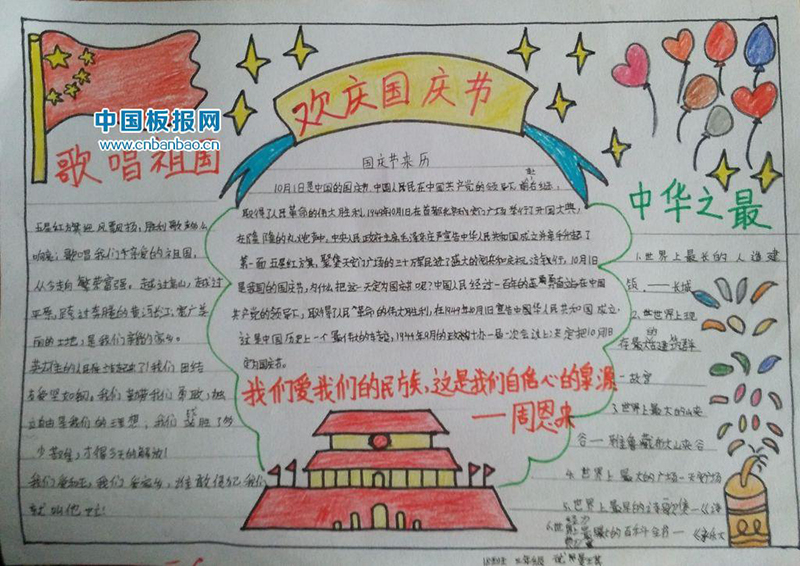 欢庆国庆节
中国板报网
www.cnbanbao.cn
歌唱祖国
五星红旗迎风飘扬，胜利歌声多么
响亮；歌唱我们亲爱的祖国，
从今走向繁荣富强。越过高山，越过
平原，跨过奔腾的黄河长江；宽广美
丽的土地，是我们亲爱的家乡。
英雄的人民站起来了！我们团结
友爱坚如钢。
我们战胜了多
少苦难，才得今天的解放！
我们爱和平，我们爱家乡，谁敢侵犯我们
就叫他亡！
国庆节来历
10月1日是中国的国庆节，中国人民在中国共产党的领导下，前赴后继，
取得了人民革命的伟大胜利，1949年10月1日在首都北京天安门广场举行了开国大典，
在隆隆的礼炮声中，中央人民政府主席毛泽东庄严宣告中华人民共和国成立并亲手升起了
第一面五星红旗，聚集天安门广场的三十万军民进行了盛大的阅兵和庆祝游行。10月1日
是我国的国庆节，为什么把这一天定为国庆节呢？中国人民经过一百年的英勇奋战在中国
共产党的领导下，取得了人民革命的伟大胜利，在1949年10月1日宣告中国华人民共和国成立，
这是中国历史上一个最伟大的转变，
定为国庆节。
我们爱我们的民族，这是我们自信心的源
——周恩来
中华之最
1.世界上最长的人造建
筑——长城
2.世界上现
存最大的建筑群
—故宫
3.世界上最大的山峡
谷—雅鲁藏布大山夹谷
4.世界上最大的广场—天安门广场